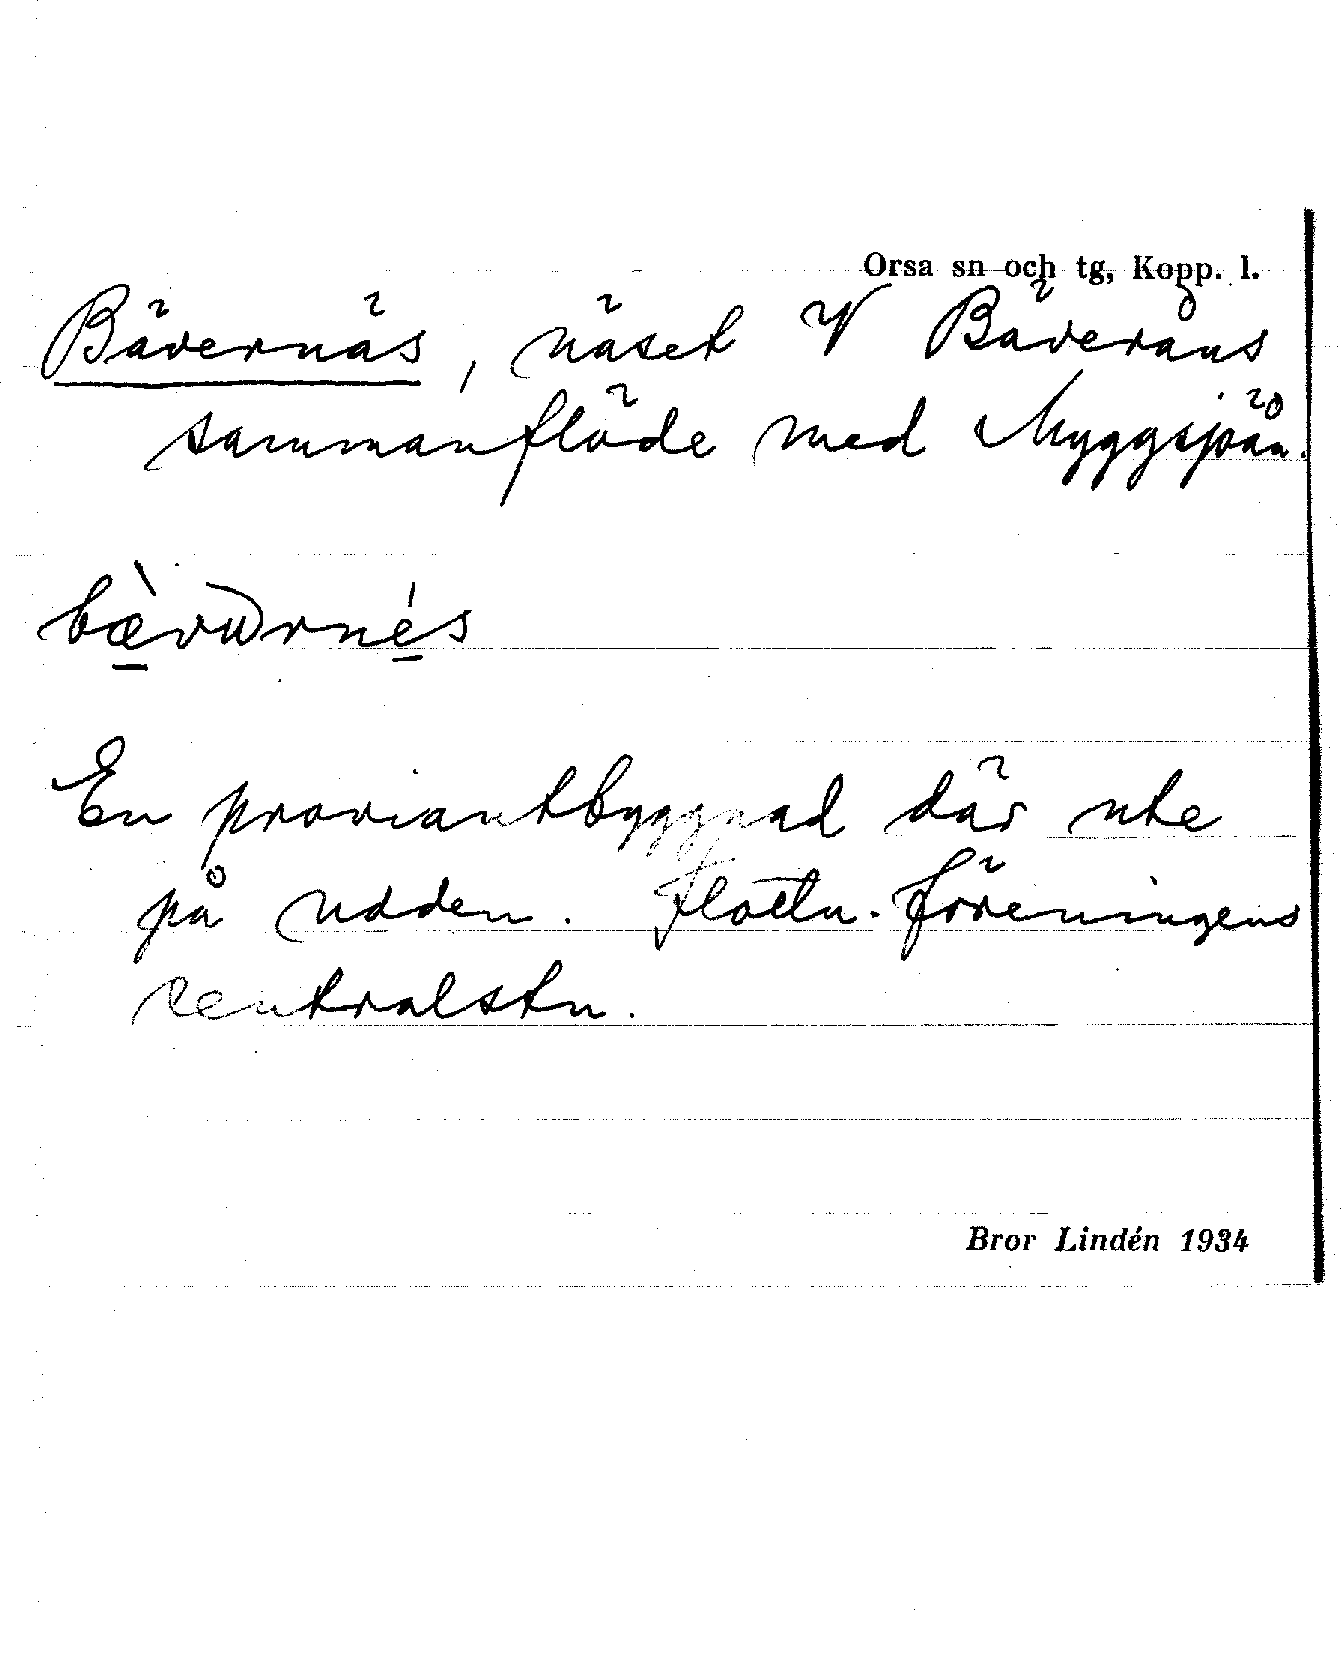 Orsa sn och tg, Kopp. l.
Bävernäs, näset V Bäveråns
sammanflöde med Myggsjöån.
bæ̀vu̅rnés
En proviantbyggnad där ute
på udden. Flottn.föreningens
centralstn.
Bror Lindén 1934